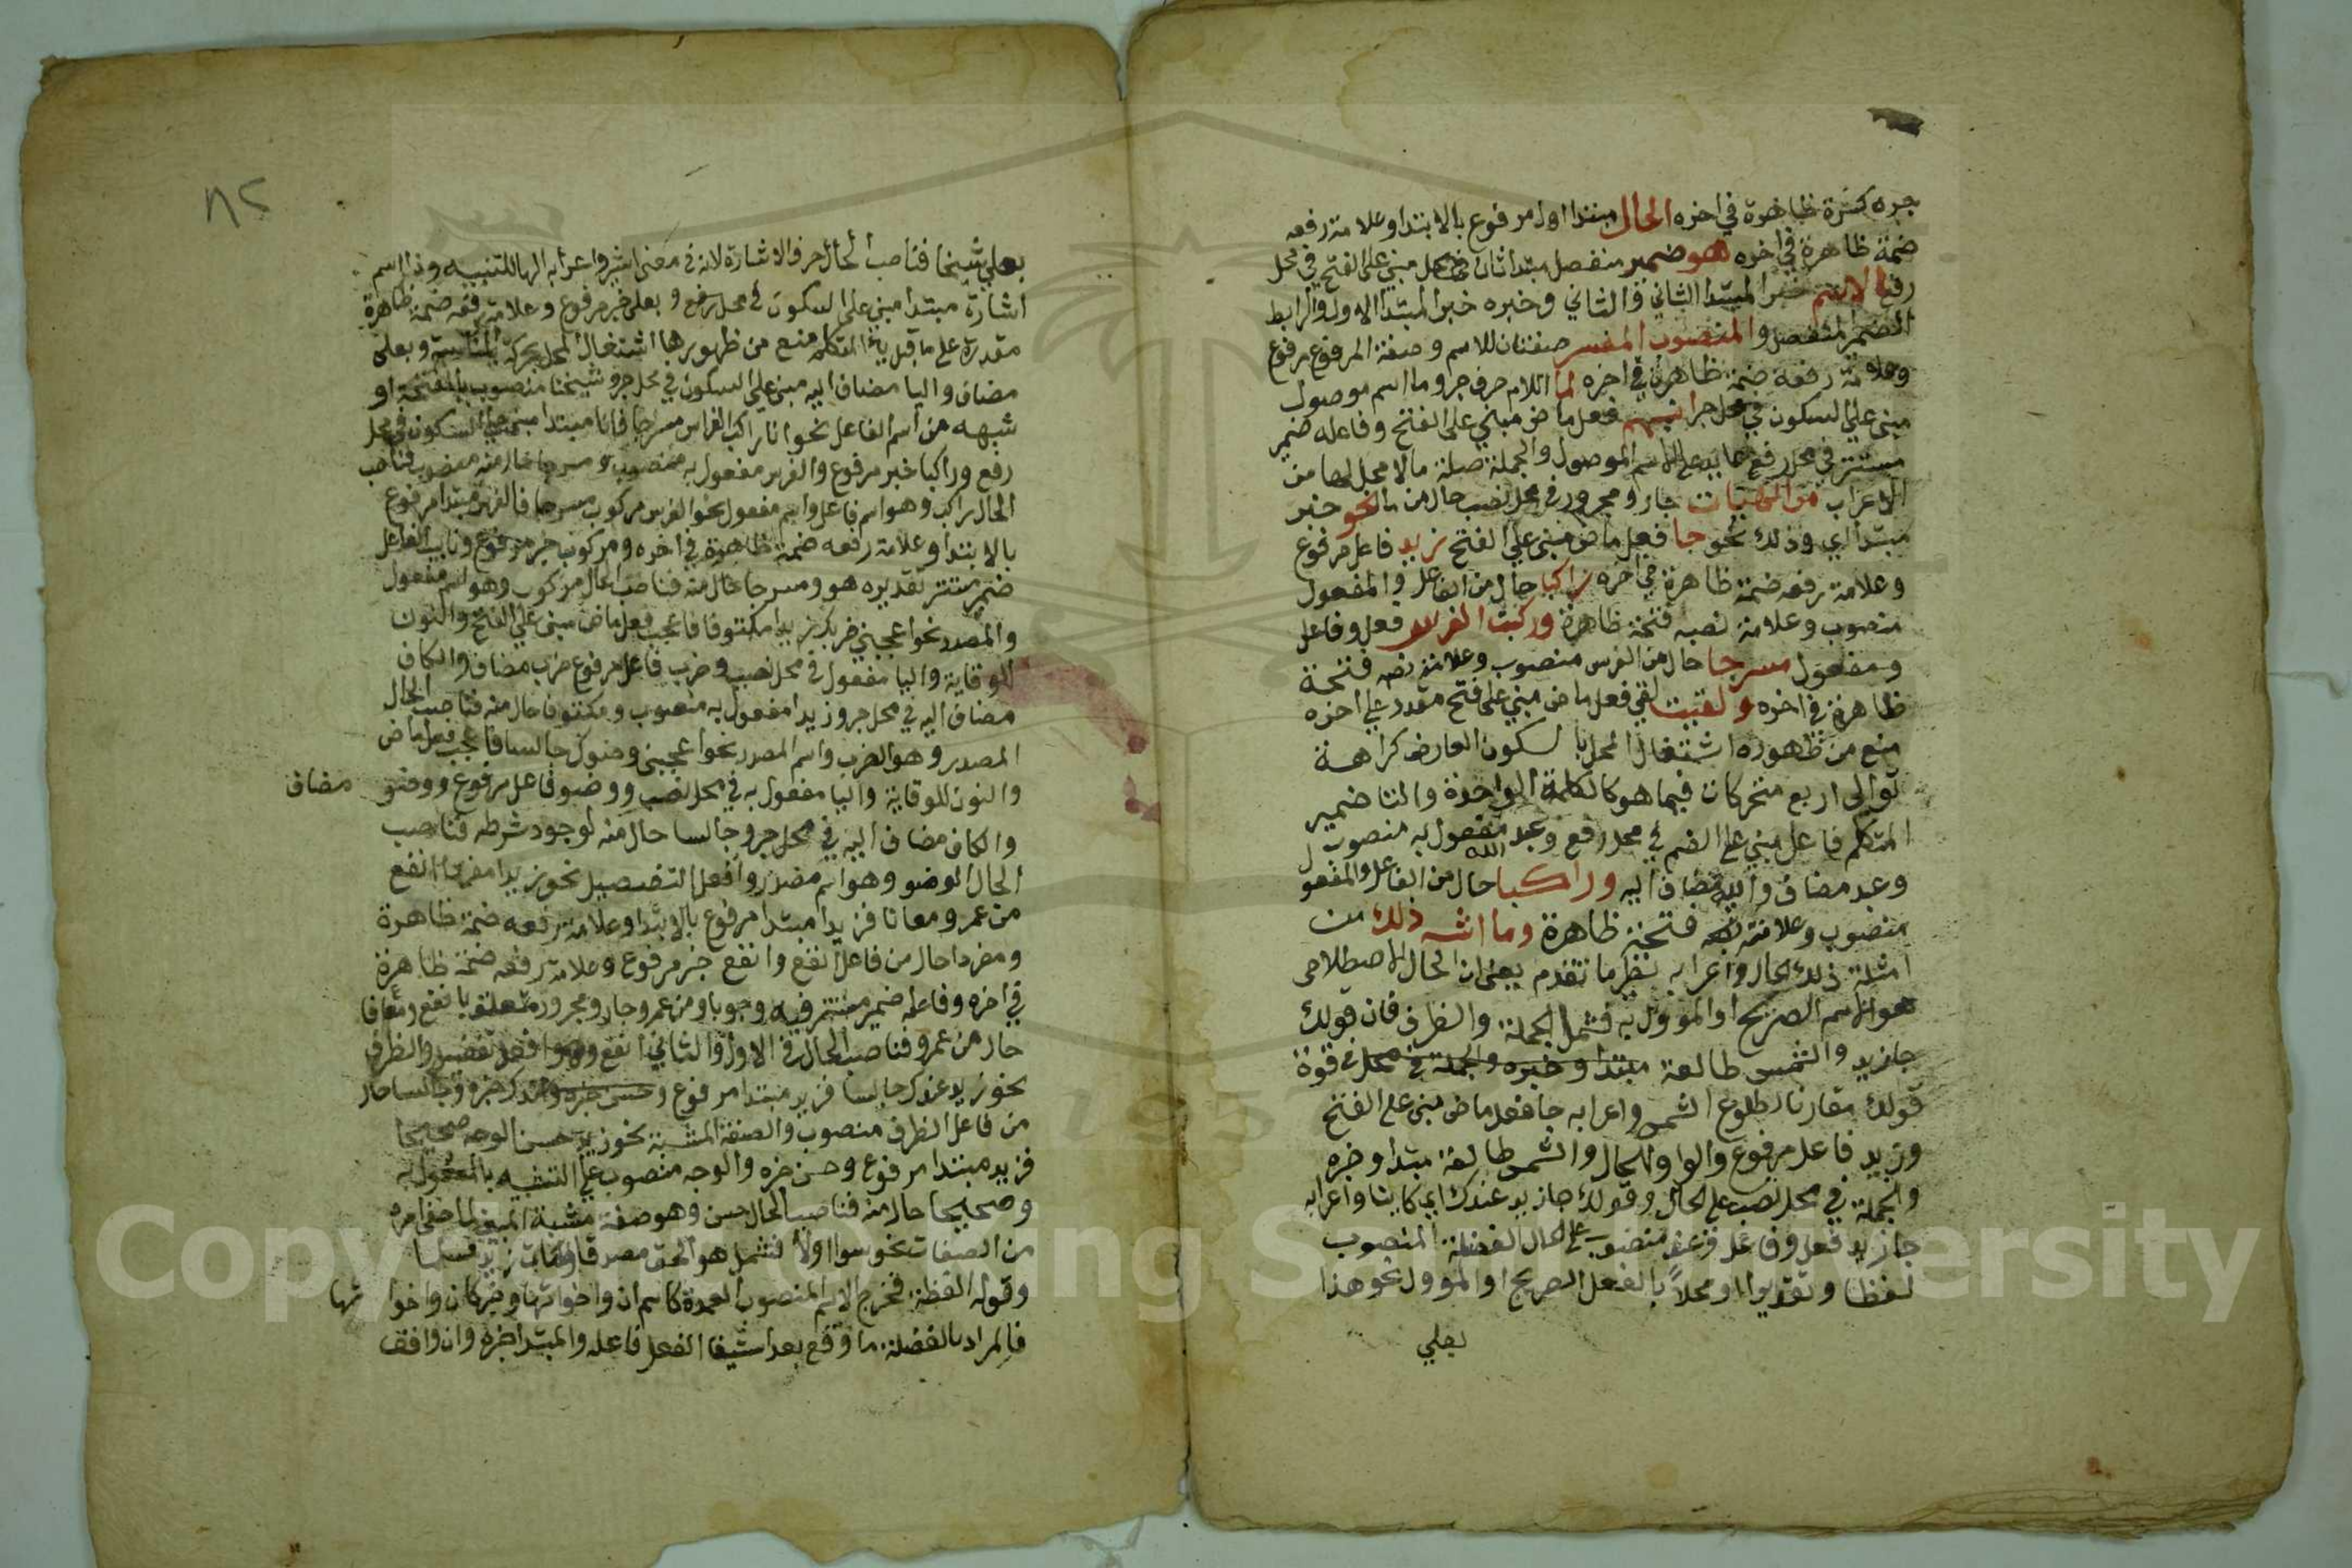 جره كسرة ظاهرة في اخره الحال مبتدا اول مرفوع بالابتدا وعلامة رفعه
ضمة ظاهرة في اخره هو ضمير منفصل مبتدا ثان في محل مبني على الفتح في محل
رفع الاسم خبر المبتدا الثاني والثاني وخبره خبر المبتدا الاول والرابط
الضمير المنفصل والمنصوب المفسر صفتان للاسم وصفة المرفوع مرفوع
وعلامة رفعه ضمة ظاهرة في اخره لما اللام حرف جر وما اسم موصول
مبني على السكون في محل جر انبهم فعل ماض مبني على الفتح وفاعله ضمير
مستتر في محل رفع عايد على الاسم الموصول والجملة صلة ما لا محل لها من
الاعراب من الهيات جار ومجرور في محل نصب حال من ما نحو خبر
مبتدا اي وذلك نحو جا فعل ماض مبني على الفتح زيد فاعل مرفوع
وعلامة رفعه ضمة ظاهرة في اخره راكبا حال من الفاعل والمفعول
منصوب وعلامة نصبه فتحة ظاهرة وركبت الفرس فعل وفاعل
ومفعول مسرجا حال من الفرس منصوب وعلامة نصبه فتحة
ظاهرة في اخره ولقيت لقي فعل ماض مبني على فتح مقدر على اخره
منع من ظهوره اشتغال المحل بالسكون العارض كراهة
توالي اربع متحركات فيما هو كالكلمة الواحدة والتا ضمير
المتكلم فاعل مبني على الضم في محل رفع وعبد مفعول به منصوب
وعبد مضاف والله مضاف اليه وراكبا حال من الفاعل والمفعول
منصوب وعلامة نصبه فتحة ظاهرة وما اشبه ذلك من
امثلة ذلك الحال واعرابه نظير ما تقدم يعني ان الحال الاصطلاحي
هو الاسم الصريح او المووّل به فشمل الجملة والظرف فان قولك
جا زيد والشمس طالعة مبتدا وخبره والجملة في محل في قوة
قولك مقارنا لطلوع الشمس واعرابه جا فعل ماض مبني على الفتح
وزيد فاعل مرفوع والواو للحال والشمس طالعة مبتدا وخبره
والجملة في محل نصب على الحال وقولك جا زيد عندك اي كاينا واعرابه
جا زيد فعل وفاعل فعند منصوب على الحال الفضلة المنصوب
لفظا وتقديرا او محلاً بالفعل الصريح او المووّل نحو هذا
بعلي
٨٢
بعلي شيخا فناصب الحال حرف الاشارة لانه في معنى اشير واعرابه الها للتنبيه وذا اسم
اشارة مبتدا مبني على السكون في محل رفع وبعلي خبر مرفوع وعلامة رفعه ضمة ظاهرة
مقدرة على ما قبل يا المتكلم منع من ظهورها اشتغال المحل بحركة المناسبة وبعل
مضاف واليا مضاف اليه مبني على السكون في محل جر وشيخا منصوب بالفتحة او
شبهه من اسم الفاعل نحو انا راكب الفرس مسرجا فانا مبتدا مبني على السكون في محل
رفع وراكبا خبر مرفوع والفرس مفعول به منصوب ومسرجا حال منه منصوب فناصب
الحال راكب وهو اسم فاعل واسم مفعول نحو الفرس مركوب مسرجا فالفرس مبتدا مرفوع
بالابتدا وعلامة رفعه ضمة ظاهرة في اخره ومركوب خبر مرفوع ونايب الفاعل
ضمير مستتر تقديره هو ومسرجا حال منه فناصب الحال مركوب وهو اسم مفعول
والمصدر نحو اعجبني ضربك زيدا مكتوفا فاعجب فعل ماض مبني على الفتح والنون
للوقاية واليا مفعول في محل نصب وضرب فاعل مرفوع ضرب مضاف والكاف
مضاف اليه في محل جر وزيدا مفعول به منصوب ومكتوفا حال منه فناصب الحال
المصدر وهو الضرب واسم المصدر نحو اعجبني وضوك جالسا فاعجب فعل ماض
والنون للوقاية واليا مفعول به في محل نصب ووضو فاعل مرفوع ووضو مضاف
والكاف مضاف اليه في محل جر وجالسا حال منه لوجود شرطه فناصب
الحال الوضو وهو اسم مصدر وأفعل التفضيل نحو زيدا مفردا انفع
من عمرو معانا فزيدا مبتدا مرفوع بالابتدا وعلامة رفعه ضمة ظاهرة
ومفردا حال من فاعل انفع وانفع خبر مرفوع وعلامة رفعه ضمة ظاهرة
في اخره وفاعله ضمير مستتر فيه وجوبا ومن عمرو جار ومجرور متعلق بانفع ومعانا
حال من عمرو فناصب الحال في الاول والثاني انفع وهو افعل تفضيل والظرف
نحو زيد عندك جالسا فزيد مبتدا مرفوع وحسن خبره وعندك خبره وجالسا حال
من فاعل الظرف منصوب والصفة المشبهة نحو زيد حسن الوجه صحيحا
فزيد مبتدا مرفوع وحسن خبره والوجه منصوب على التشبيه بالمفعول به
وصحيحا حال منه فناصب الحال حسن وهو صفة مشبهة المبين لما خفي امره
من الصفات نحو سوا اولا فشمل هو الحق مصدقا
وقوله الفضلة فخرج الاسم المنصوب العمدة كاسم ان واخواتها وخبر كان واخواتها
فالمراد بالفضلة ما وقع بعد استيفا الفعل فاعله والمبتدا خبره وان وافق
Copyright © King Saud University
195